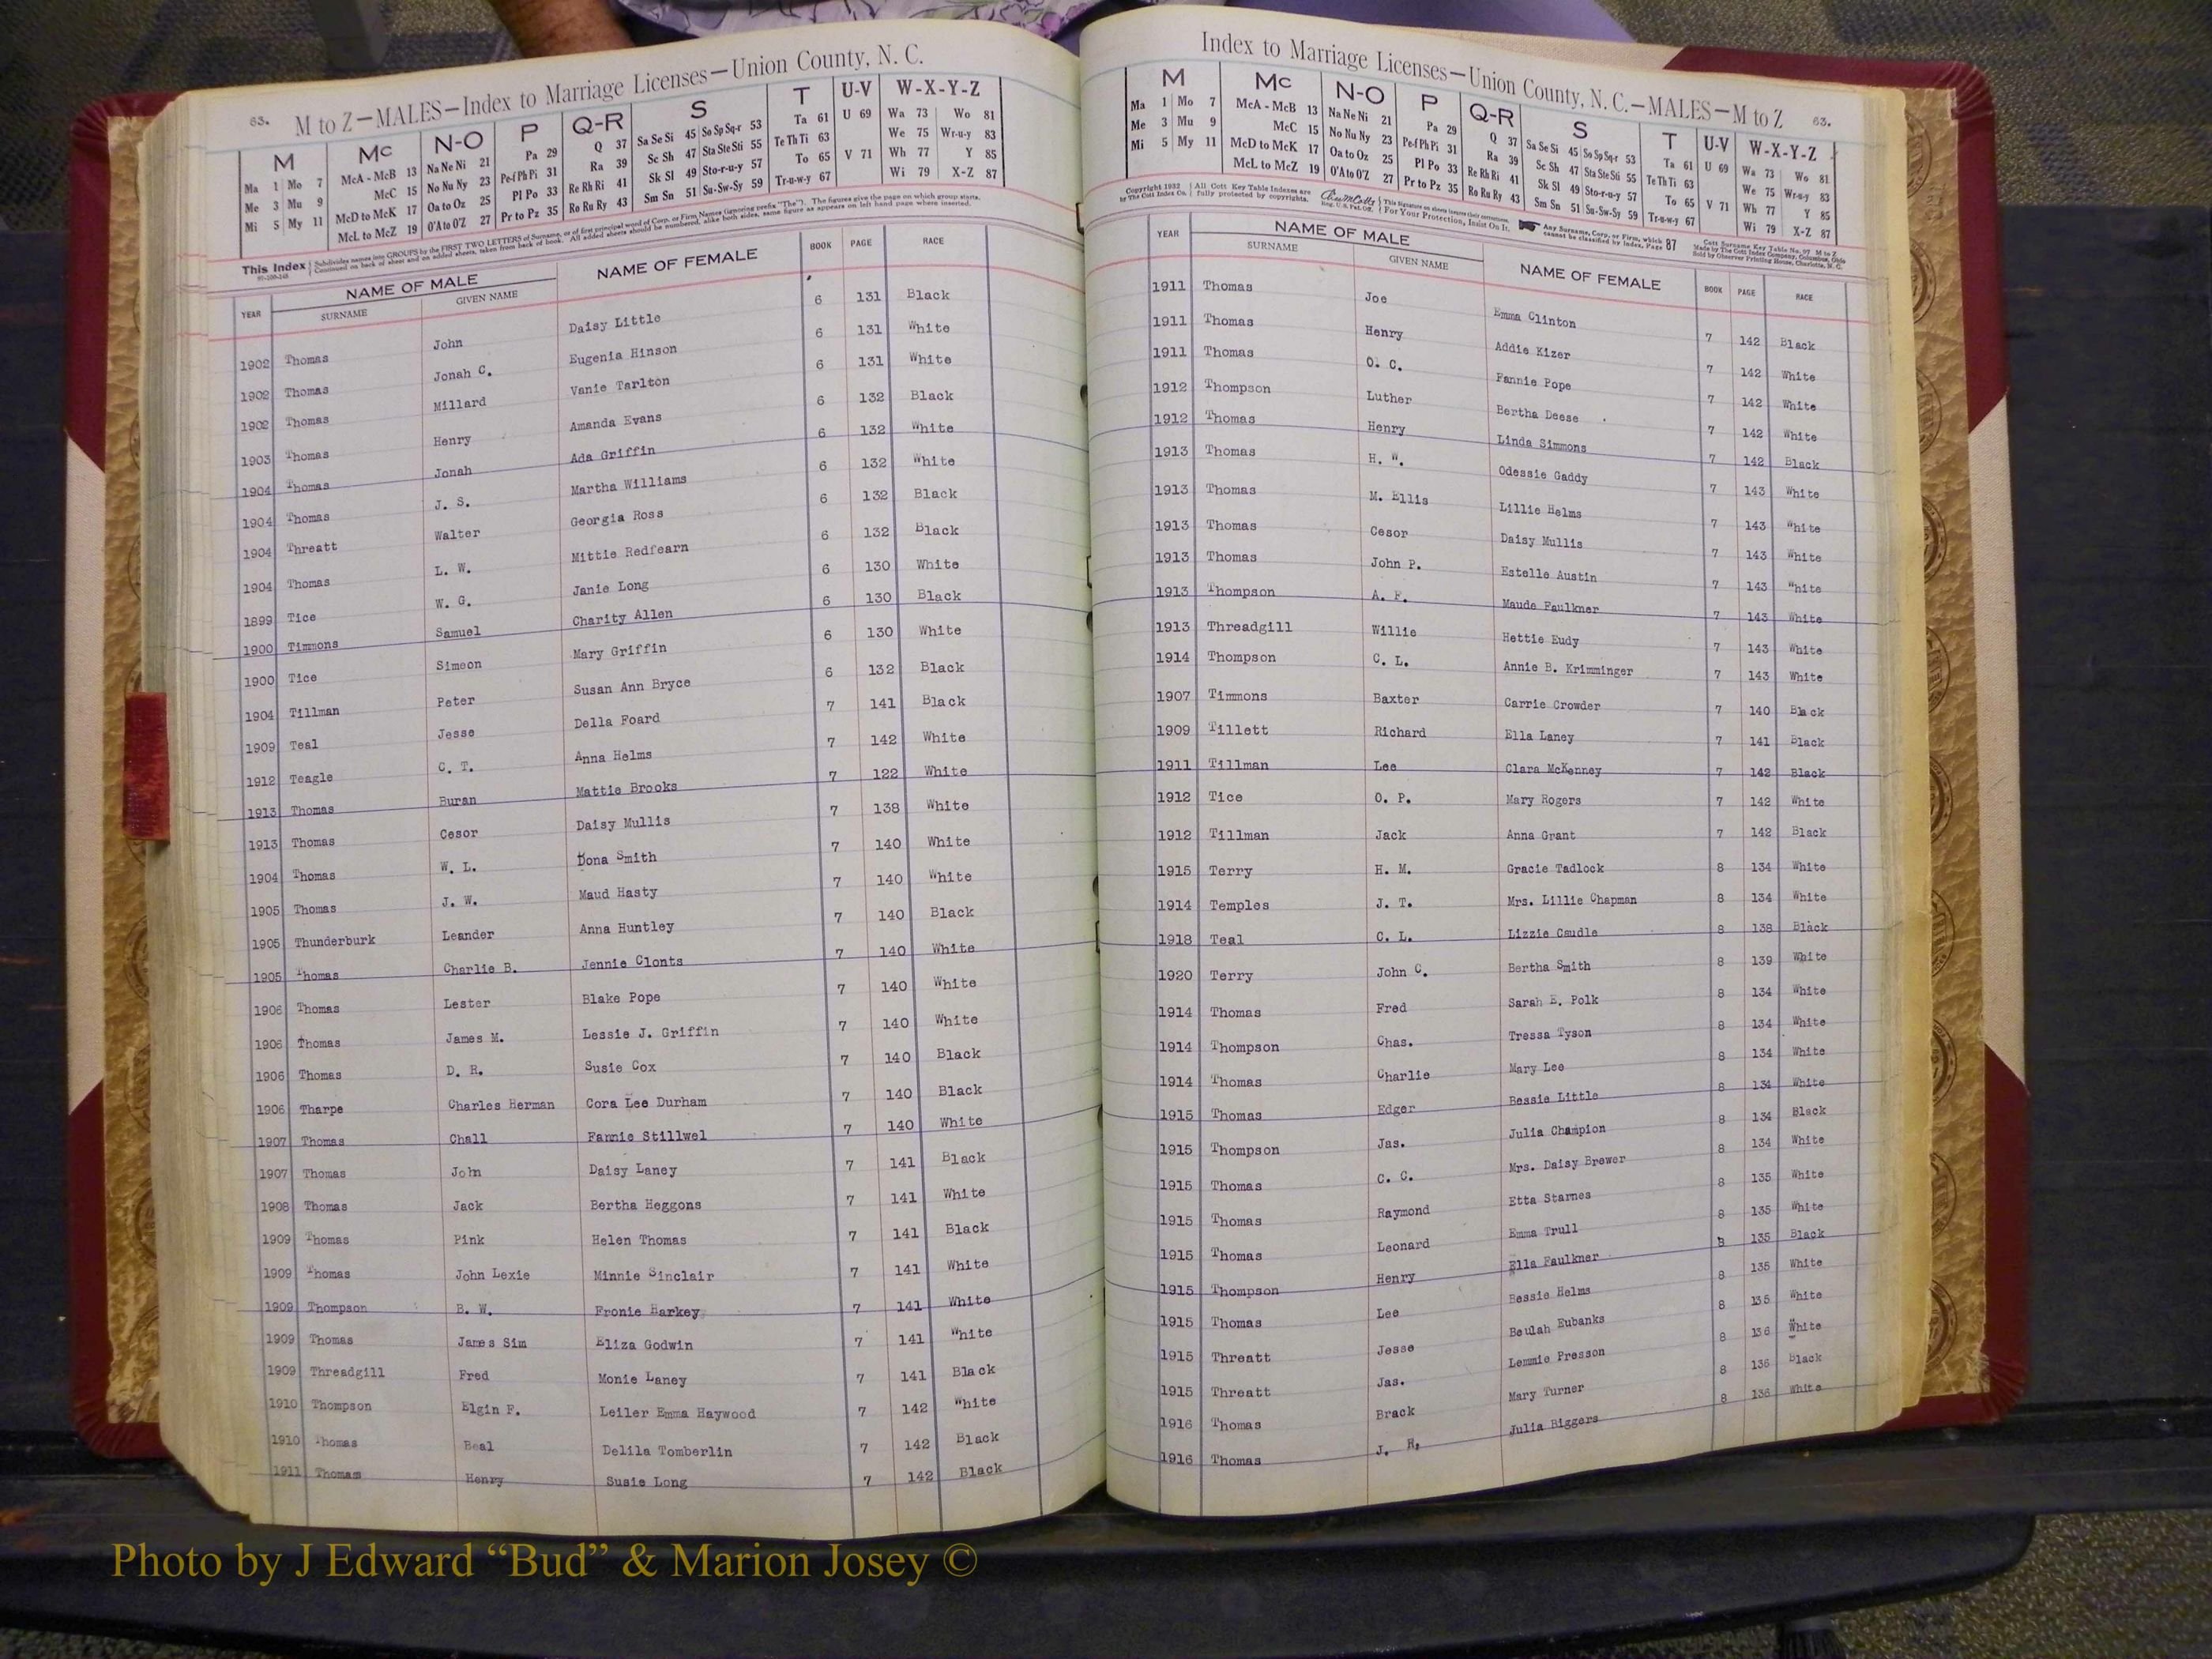 63. M to Z—MALES—Index to Marriage Licenses—Union County, N. C.
M Mc N-O P Q-R S T U-V W-X-Y-Z
Ma 1 Mo 7 McA - McB 13 Na Ne Ni 21 Pa 29 Q 37 Sa Se Si 45 So Sp Sq-r 53 Ta 61 U 69 Wa 73 Wo 81
Me 3 Mu 9 McC 15 No Nu Ny 23 Pe-f Ph Pi 31 Ra 39 Sc Sh 47 Sta Ste Sti 55 Te Th Ti 63 We 75 Wr-u-y 83
Mi 5 My 11 McD to McK 17 Oa to Oz 25 Pl Po 33 Re Rh Ri 41 Sk Sl 49 Sto-r-u-y 57 To 65 V 71 Wh 77 Y 85
McL to McZ 19 O'A to O'Z 27 Pr to Pz 35 Ro Ru Ry 43 Sm Sn 51 Su-Sw-Sy 59 Tr-u-w-y 67 Wi 79 X-Z 87
This Index Subdivides names into GROUPS by the FIRST TWO LETTERS of Surname, or of first principal word of Corp. or Firm Names (ignoring prefix "The"). The figures give the page on which group starts.
Continued on back of sheet and on added sheets, taken from back of book. All added sheets should be numbered, alike both sides, same figure as appears on left hand page where inserted.
YEAR NAME OF MALE NAME OF FEMALE BOOK PAGE RACE
SURNAME GIVEN NAME
1902 Thomas John Daisy Little 6 131 Black
1902 Thomas Jonah C. Eugenia Hinson 6 131 White
1902 Thomas Millard Vanie Tarlton 6 131 White
1903 Thomas Henry Amanda Evans 6 132 Black
1904 Thomas Jonah Ada Griffin 6 132 White
1904 Thomas J. S. Martha Williams 6 132 White
1904 Threatt Walter Georgia Ross 6 132 Black
1904 Thomas L. W. Mittie Redfearn 6 132 Black
1899 Tice W. G. Janie Long 6 130 White
1900 Timmons Samuel Charity Allen 6 130 Black
1900 Tice Simeon Mary Griffin 6 130 White
1904 Tillman Peter Susan Ann Bryce 6 132 Black
1909 Teal Jesse Della Foard 7 141 Black
1912 Teagle C. T. Anna Helms 7 142 White
1913 Thomas Buran Mattie Brooks 7 122 White
1913 Thomas Cesor Daisy Mullis 7 138 White
1904 Thomas W. L. Dona Smith 7 140 White
1905 Thomas J. W. Maud Hasty 7 140 White
1905 Thunderburk Leander Anna Huntley 7 140 Black
1905 Thomas Charlie B. Jennie Clonts 7 140 White
1906 Thomas Lester Blake Pope 7 140 White
1906 Thomas James M. Lessie J. Griffin 7 140 White
1906 Thomas D. R. Susie Cox 7 140 Black
1906 Tharpe Charles Herman Cora Lee Durham 7 140 Black
1907 Thomas Chall Fannie Stillwel 7 140 White
1907 Thomas John Daisy Laney 7 141 Black
1908 Thomas Jack Bertha Heggons 7 141 White
1909 Thomas Pink Helen Thomas 7 141 Black
1909 Thomas John Lexie Minnie Sinclair 7 141 White
1909 Thompson B. W. Fronie Barkey 7 141 White
1909 Thomas James Sim Eliza Godwin 7 141 White
1909 Threadgill Fred Monie Laney 7 141 Black
1910 Thompson Elgin F. Leiler Emma Haywood 7 142 White
1910 Thomas Beal Delila Tomberlin 7 142 Black
1911 Thomas Henry Susie Long 7 142 Black
Index to Marriage Licenses—Union County, N. C.—MALES—M to Z 63.
M Mc N-O P Q-R S T U-V W-X-Y-Z
Ma 1 Mo 7 McA - McB 13 Na Ne Ni 21 Pa 29 Q 37 Sa Se Si 45 So Sp Sq-r 53 Ta 61 U 69 Wa 73 Wo 81
Me 3 Mu 9 McC 15 No Nu Ny 23 Pe-f Ph Pi 31 Ra 39 Sc Sh 47 Sta Ste Sti 55 Te Th Ti 63 We 75 Wr-u-y 83
Mi 5 My 11 McD to McK 17 Oa to Oz 25 Pl Po 33 Re Rh Ri 41 Sk Sl 49 Sto-r-u-y 57 To 65 V 71 Wh 77 Y 85
McL to McZ 19 O'A to O'Z 27 Pr to Pz 35 Ro Ru Ry 43 Sm Sn 51 Su-Sw-Sy 59 Tr-u-w-y 67 Wi 79 X-Z 87
Copyright 1932 All Cott Key Table Indexes are This signature on sheets insures their correctness. Any Surname, Corp. or Firm, which Cott Surname Key Table No. 97 M to Z
by The Cott Index Co. fully protected by copyrights. Reg. U. S. Pat. Off. For Your Protection, Insist On It. cannot be classified by Index, Page 87 Made by The Cott Index Company, Columbus, Ohio
Sold by Observer Printing House, Charlotte, N. C.
YEAR NAME OF MALE NAME OF FEMALE BOOK PAGE RACE
SURNAME GIVEN NAME
1911 Thomas Joe Emma Clinton 7 142 Black
1911 Thomas Henry Addie Kizer 7 142 White
1911 Thomas O. C. Fannie Pope 7 142 White
1912 Thompson Luther Bertha Deese 7 142 White
1912 Thomas Henry Linda Simmons 7 142 Black
1913 Thomas H. W. Odessie Gaddy 7 143 White
1913 Thomas M. Ellis Lillie Helms 7 143 White
1913 Thomas Cesor Daisy Mullis 7 143 White
1913 Thomas John P. Estelle Austin 7 143 White
1913 Thompson A. F. Maude Faulkner 7 143 White
1913 Threadgill Willie Hettie Eudy 7 143 White
1914 Thompson C. L. Annie B. Krimminger 7 143 White
1907 Timmons Baxter Carrie Crowder 7 140 Black
1909 Tillett Richard Ella Laney 7 141 Black
1911 Tillman Lee Clara McKenney 7 142 Black
1912 Tice O. P. Mary Rogers 7 142 White
1912 Tillman Jack Anna Grant 7 142 Black
1915 Terry H. M. Gracie Tadlock 8 134 White
1914 Temples J. T. Mrs. Lillie Chapman 8 134 White
1918 Teal C. L. Lizzie Caudle 8 138 Black
1920 Terry John C. Bertha Smith 8 139 White
1914 Thomas Fred Sarah E. Polk 8 134 White
1914 Thompson Chas. Tressa Tyson 8 134 White
1914 Thomas Charlie Mary Lee 8 134 White
1915 Thomas Edger Bessie Little 8 134 White
1915 Thompson Jas. Julia Champion 8 134 Black
1915 Thomas C. C. Mrs. Daisy Brewer 8 134 White
1915 Thomas Raymond Etta Starnes 8 135 White
1915 Thomas Leonard Emma Trull 8 135 White
1915 Thompson Henry Ella Faulkner 8 135 Black
1915 Thomas Lee Bessie Helms 8 135 White
1915 Threatt Jesse Beulah Eubanks 8 135 White
1915 Threatt Jas. Lemmie Presson 8 136 White
1916 Thomas Brack Mary Turner 8 136 Black
1916 Thomas J. R. Julia Biggers 8 136 White
Photo by J Edward “Bud” & Marion Josey ©